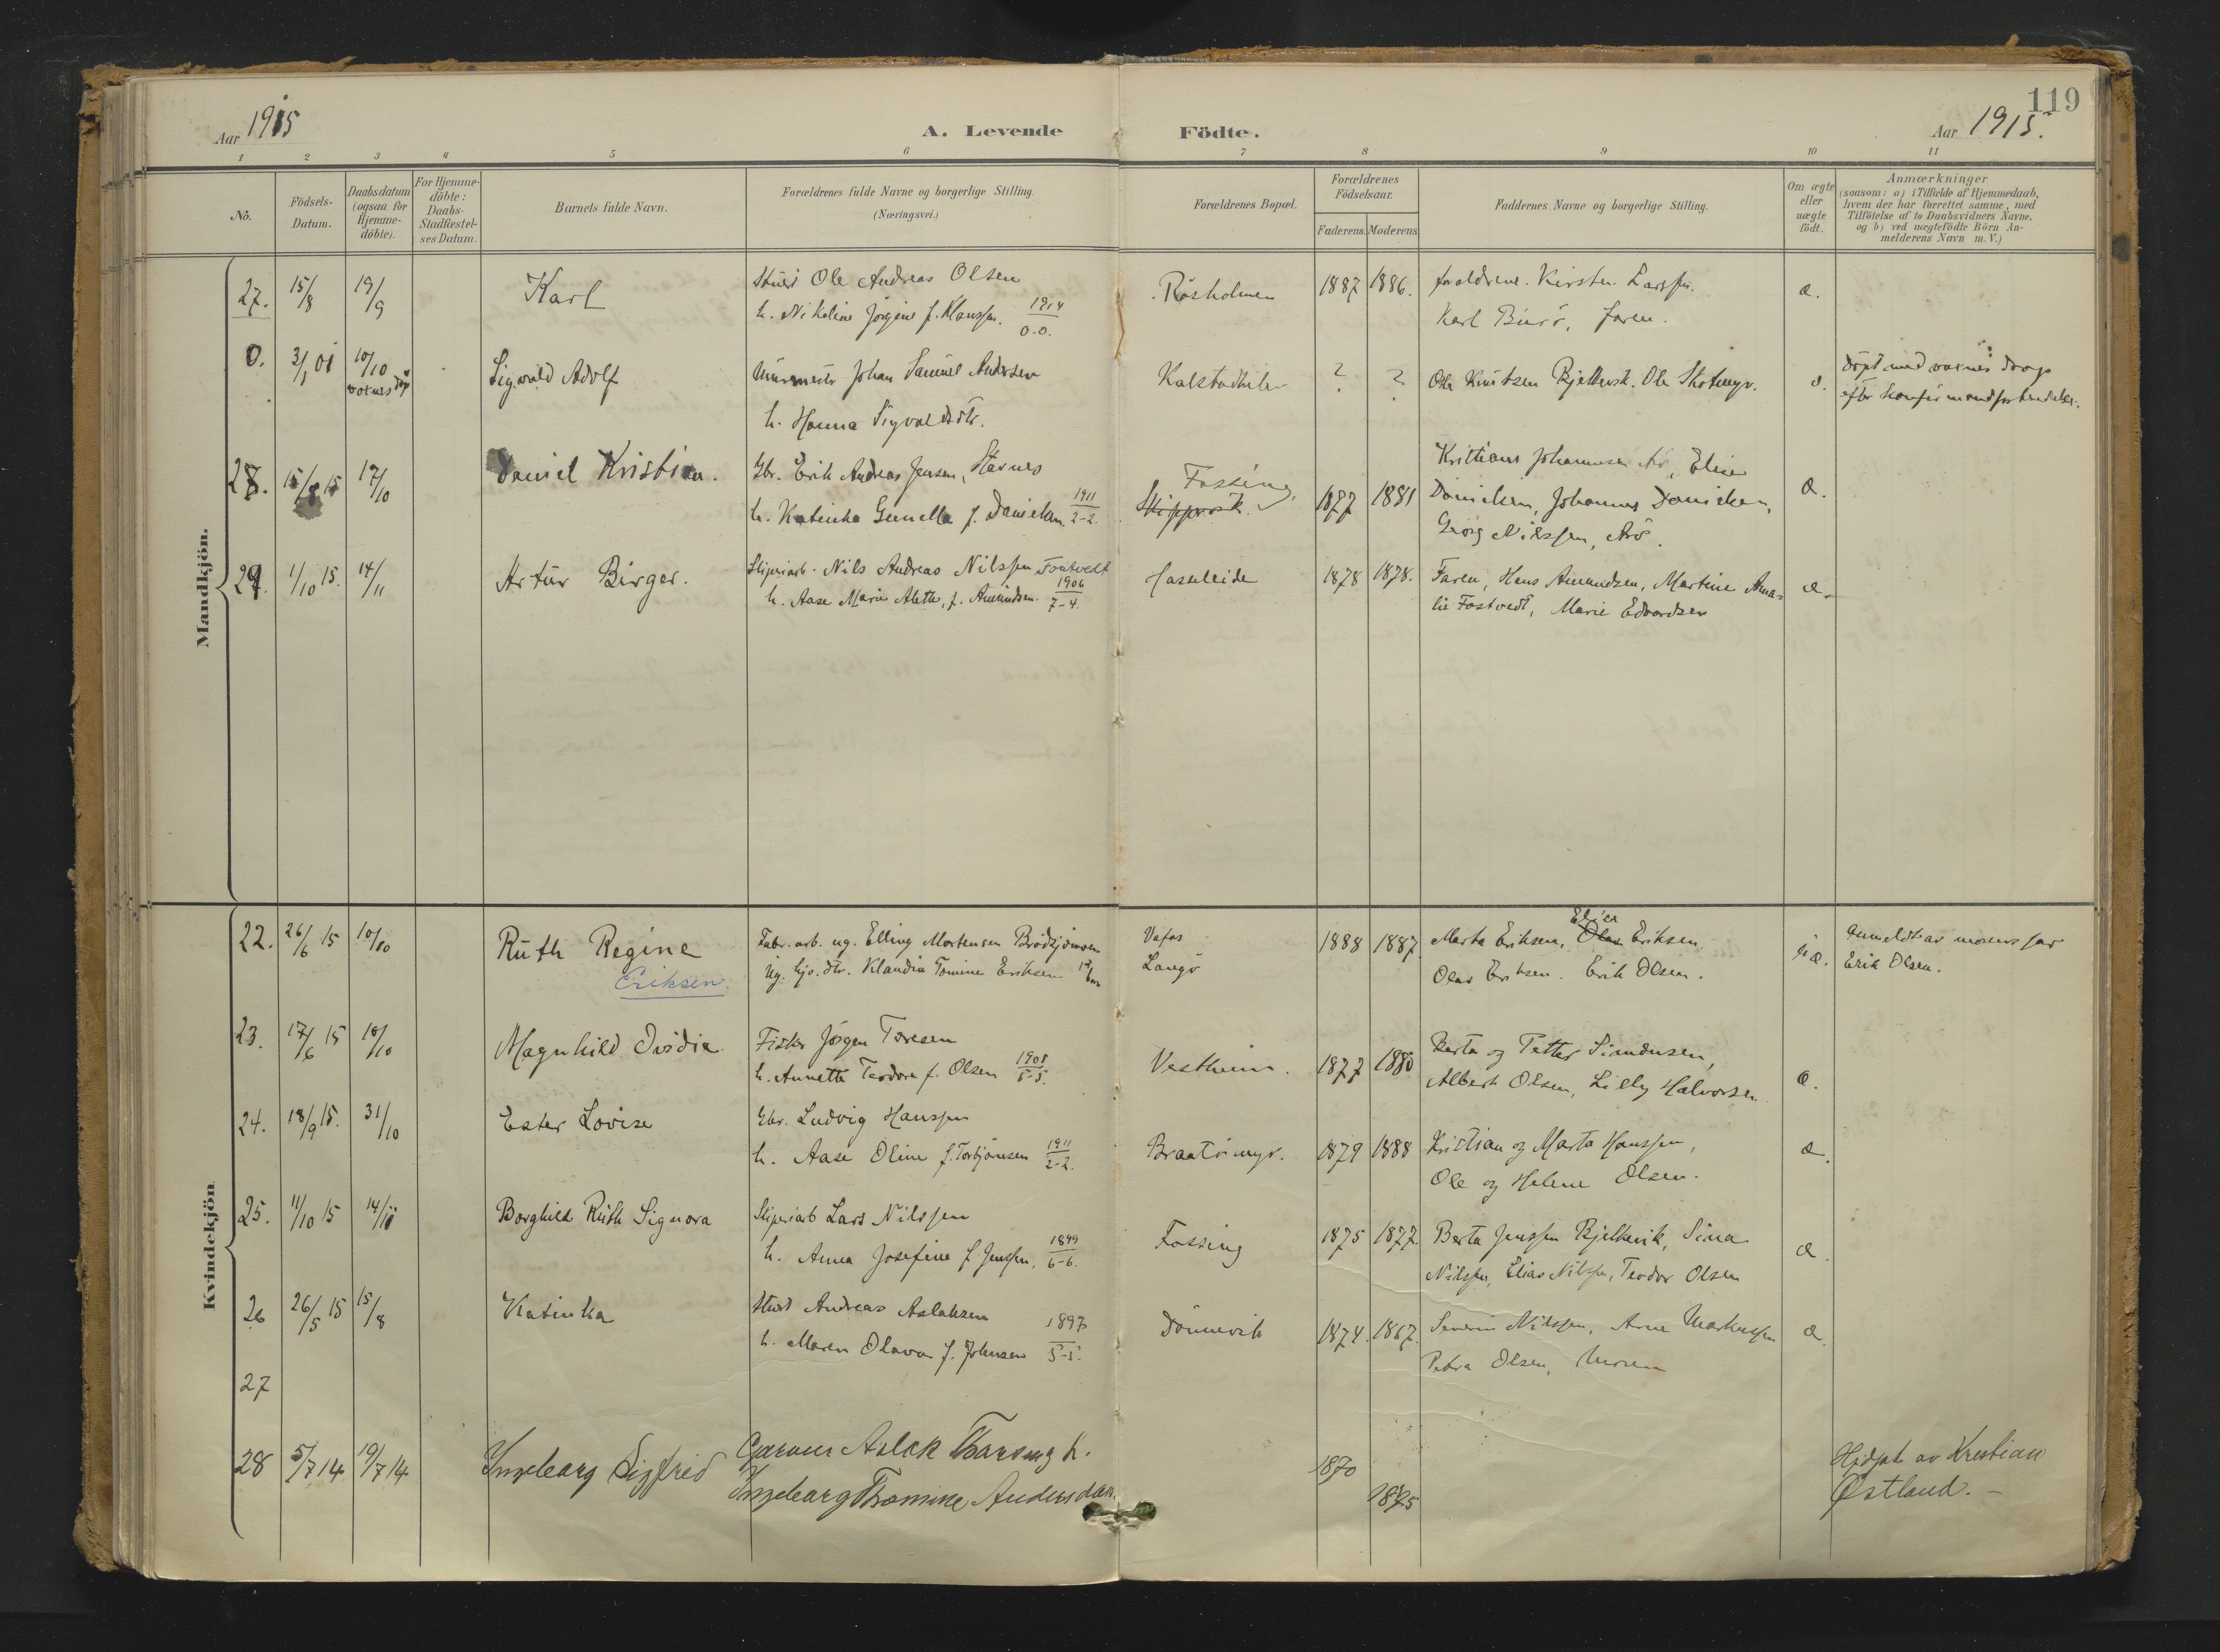 119
Aar 1915
A. Levende Födte.
Aar 1915.
1 2 3 4 5 6 7 8 9 10 11
No.
Födsels-
Datum.
Daabsdatum
(ogsaa for
Hjemme-
döbte).
For Hjemme-
döbte:
Daabs-
Stadfæstel-
ses Datum.
Barnets fulde Navn.
Forældrenes fulde Navne og borgerlige Stilling.
(Næringsvei.)
Forældrenes Bopæl.
Forældrenes
Födselsaar.
Faderens. Moderens
Faddernes Navne og borgerlige Stilling.
Om ægte
eller
uægte
födt.
Anmærkninger
(saasom: a) i Tilfælde af Hjemmedaab,
hvem der har forrettet samme, med
Tilföielse af to Daabsvidners Navne.
og b) ved uægtefödte Börn An-
melderens Navn m.V.)
Mandkjön.
27. 15/8 19/9 Karl
Ole Andreas Olsen
h. Nikoline Jörgine f. Klaussen. 1914
0.0.
Rösholmen 1887 1886. Kirsten Larssen.
Karl Burö, faren.
æ.
0. 3/1 01 10/10 Sigvald Adolf
voxnes dåp
Murmester Johan Samuel Andersen
h. Hanna Sigvaldsdtr.
Kalstadkilen ? ? Ole Knutsen Bjelkevik. Ole Skotmyr.
döpt med voxnes daap
efter
28. 15/8 15 17/10 Daniel Kristian.
Gbr. Erik Andreas Jensen, Stavnes
h. Katinka Gunella f. Danielsen 1911
2-2.
Fossing,
Skippervik. 1877 1881
Johannesen Arö, Elise
Danielsen, Johannes Danielsen,
Georg Nilssen, Arö.
æ.
29. 1/10 15. 14/11 Artur Birger.
Sliperiarb. Nils Andreas Nilssen Fostvedt
h. Aase Marie Alette, f. Amundsen. 1906
7-4.
Hasleleide 1878 1878. Faren, Hans Amundsen, Martine Ama-
lie Fostvedt, Marie Edvardsen
æ.
Kvindekjön
22. 26/6 15 10/10 Ruth Regine
Eriksen.
Fabr. arb. ug. Elling Mortensen
Ug. Klaudia Tomine Eriksen
Vafos
Langö
1888 1887. Marta Eriksen, Elise Olav Eriksen
Olav Eriksen. Erik Olsen.
uæ.
Anmeldt av morens far
Erik Olsen.
23. 17/6 15 10/10 Magnhild Ovidia
Fisker Jörgen Toresen
h. Annette Teodora f. Olsen 1908
5-5.
Vestheim. 1877 1880 Berta og Petter Simonsen,
Albert Olsen, Lilly Halvorsen
æ.
24. 18/9 15. 31/10 Ester Lovise
Gbr. Ludvig Hanssen
h. Aase Oline f. Torbjörnsen 1911
2-2.
Braatömyr. 1879 1888 Kristian og Marta Hanssen,
Ole og Helene Olsen.
æ.
25. 11/10 15 14/11 Borghild Ruth Signora
Sliperiarb Lars Nilssen
h. Anna Josefine f Jenssen, 1899
6-6.
Fossing 1875 1877. Berta Jenssen Bjelkevik, Sina
Nilssen, Elias Nilssen, Teodor Olsen
æ.
26 26/5 15 15/8 Katinka
Andreas Aslaksen
h. Maren Olava f. Johnsen 1897
5-5.
Dönnevik 1874. 1867. Severin Nilssen, Arne Markussen
Petra Olsen, Moren
æ.
27
28 5/7 14 19/7 14 Ingeborg Sigfrid
Garver Aslak Thorsen h.
Ingeborg Thomine Andersdatr.
1870
1875
Hjdpt. av Kristian
Østland.-